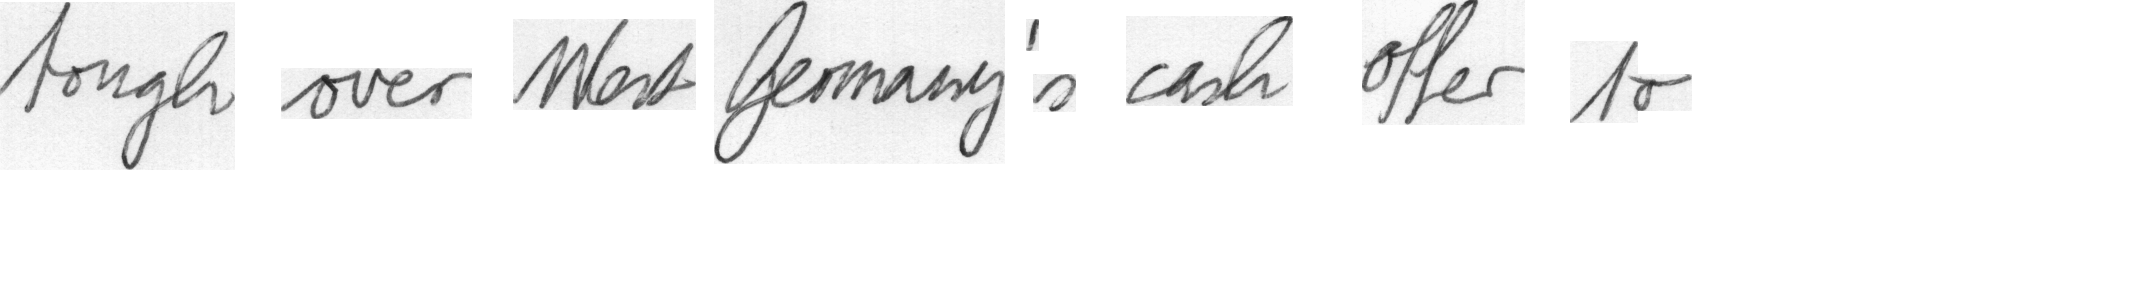 tough over West Germany's cash offer to